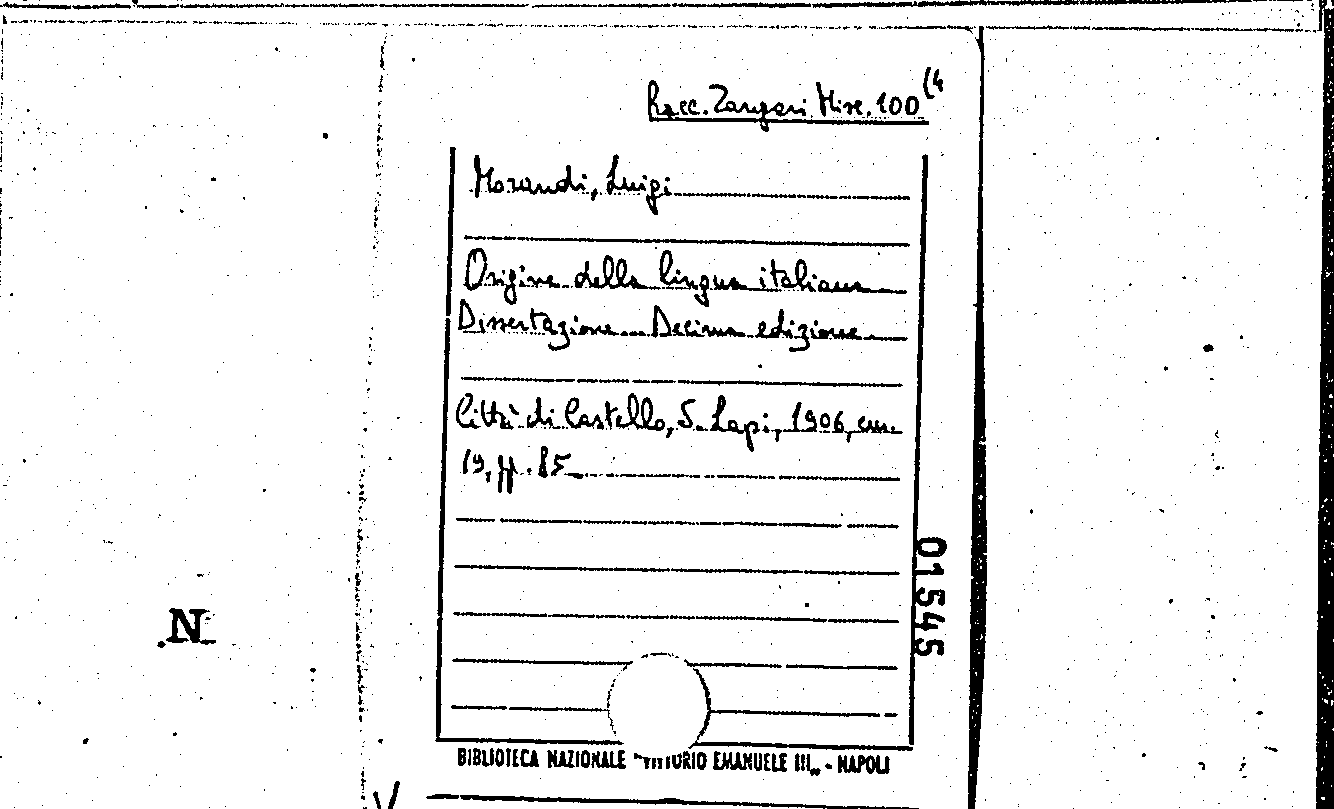 Racc. Zangari Misc. 100 (4
Morandi, Luigi
Origine della lingua italiana
Dissertazione. Decima edizione.
Città di Castello, S. Lapi, 1906, cm.
19, pp. 85
01545
N
BIBLIOTECA NAZIONALE "VITTORIO EMANUELE III„ - NAPOLI